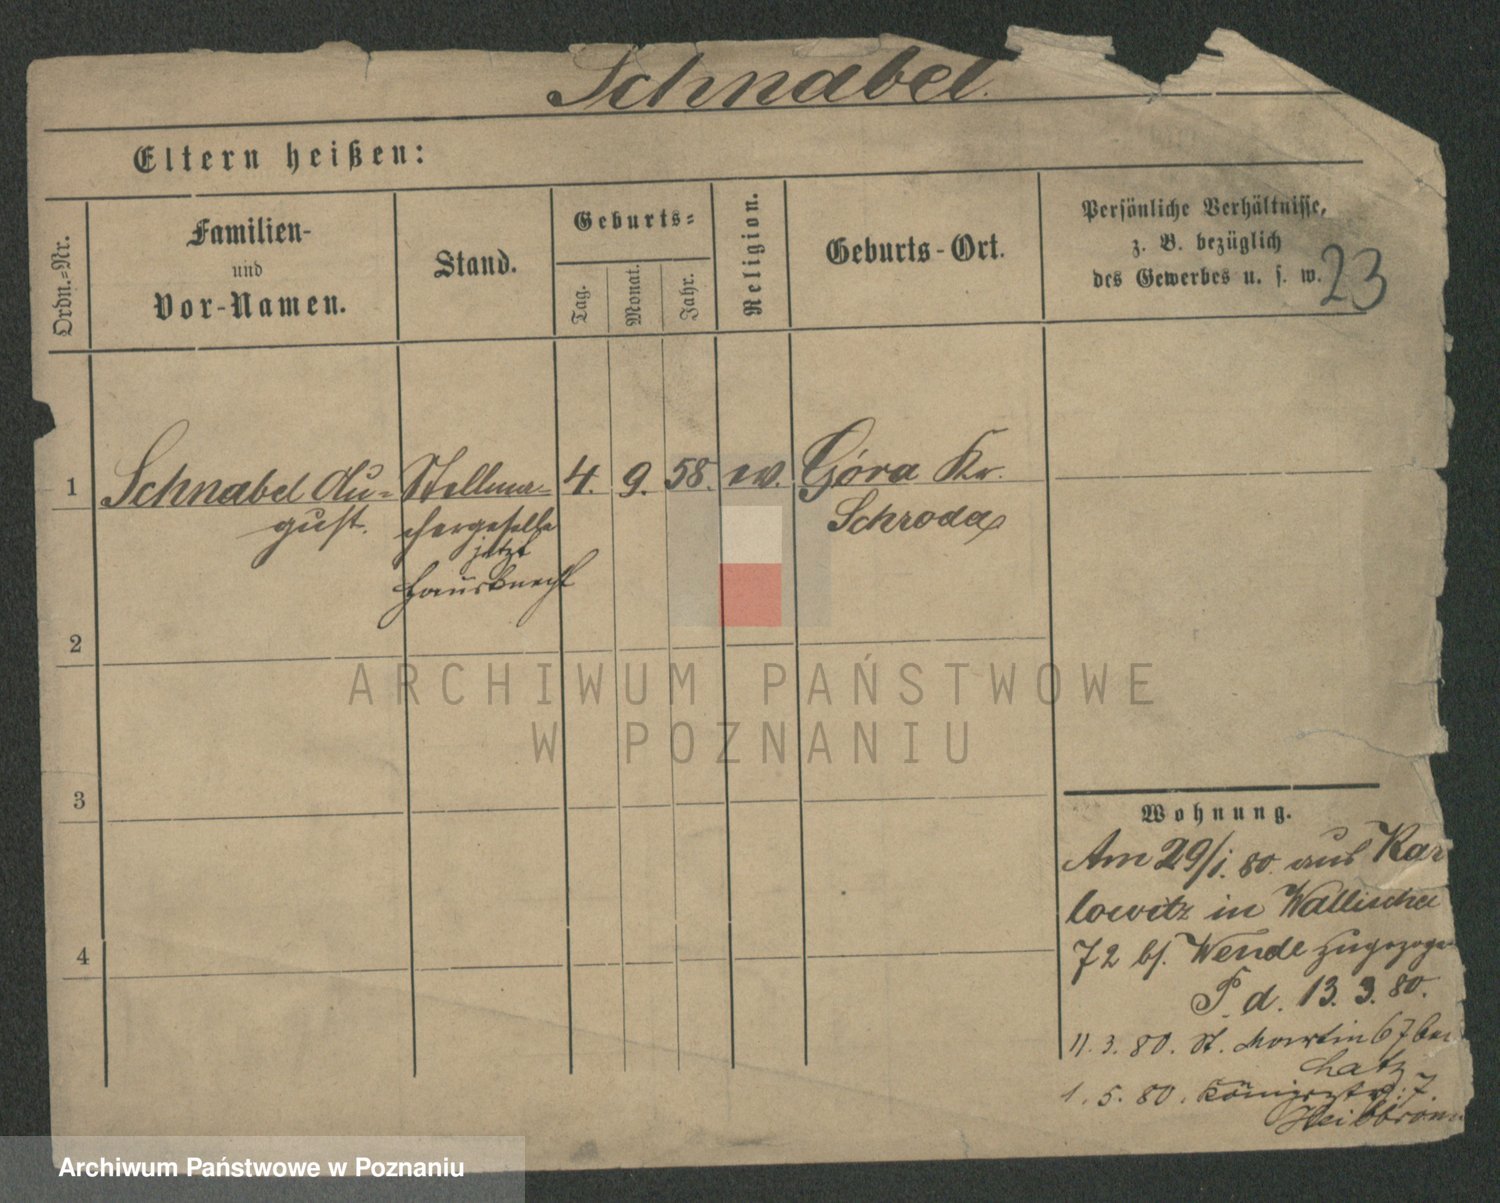 Schnabel.
Eltern heißen:
Ordn.-Nr.
Familien-
und
Vor-Namen.
Stand.
Geburts-
Tag.
Monat.
Jahr.
Religion.
Geburts-Ort.
Persönliche Verhältnisse,
z. B. bezüglich
des Gewerbes u. s. w.
23
1
Schnabel Au-
gust.
Stellma-
chergeselle
jetzt
Hausknecht
4. 9. 58. ev.
Góra Kr.
Schroda
2
3
4
Wohnung.
Am 29/1. 80. aus Kar
lowitz in Wallischei
72 bs. Wende zugezogen
P. d. 13. 3. 80.
11. 3. 80. St. Martin 67 bei
Latz
1. 5. 80. Königsstr: 7.
Heilbronn
ARCHIWUM PAŃSTWOWE
W POZNANIU
Archiwum Państwowe w Poznaniu